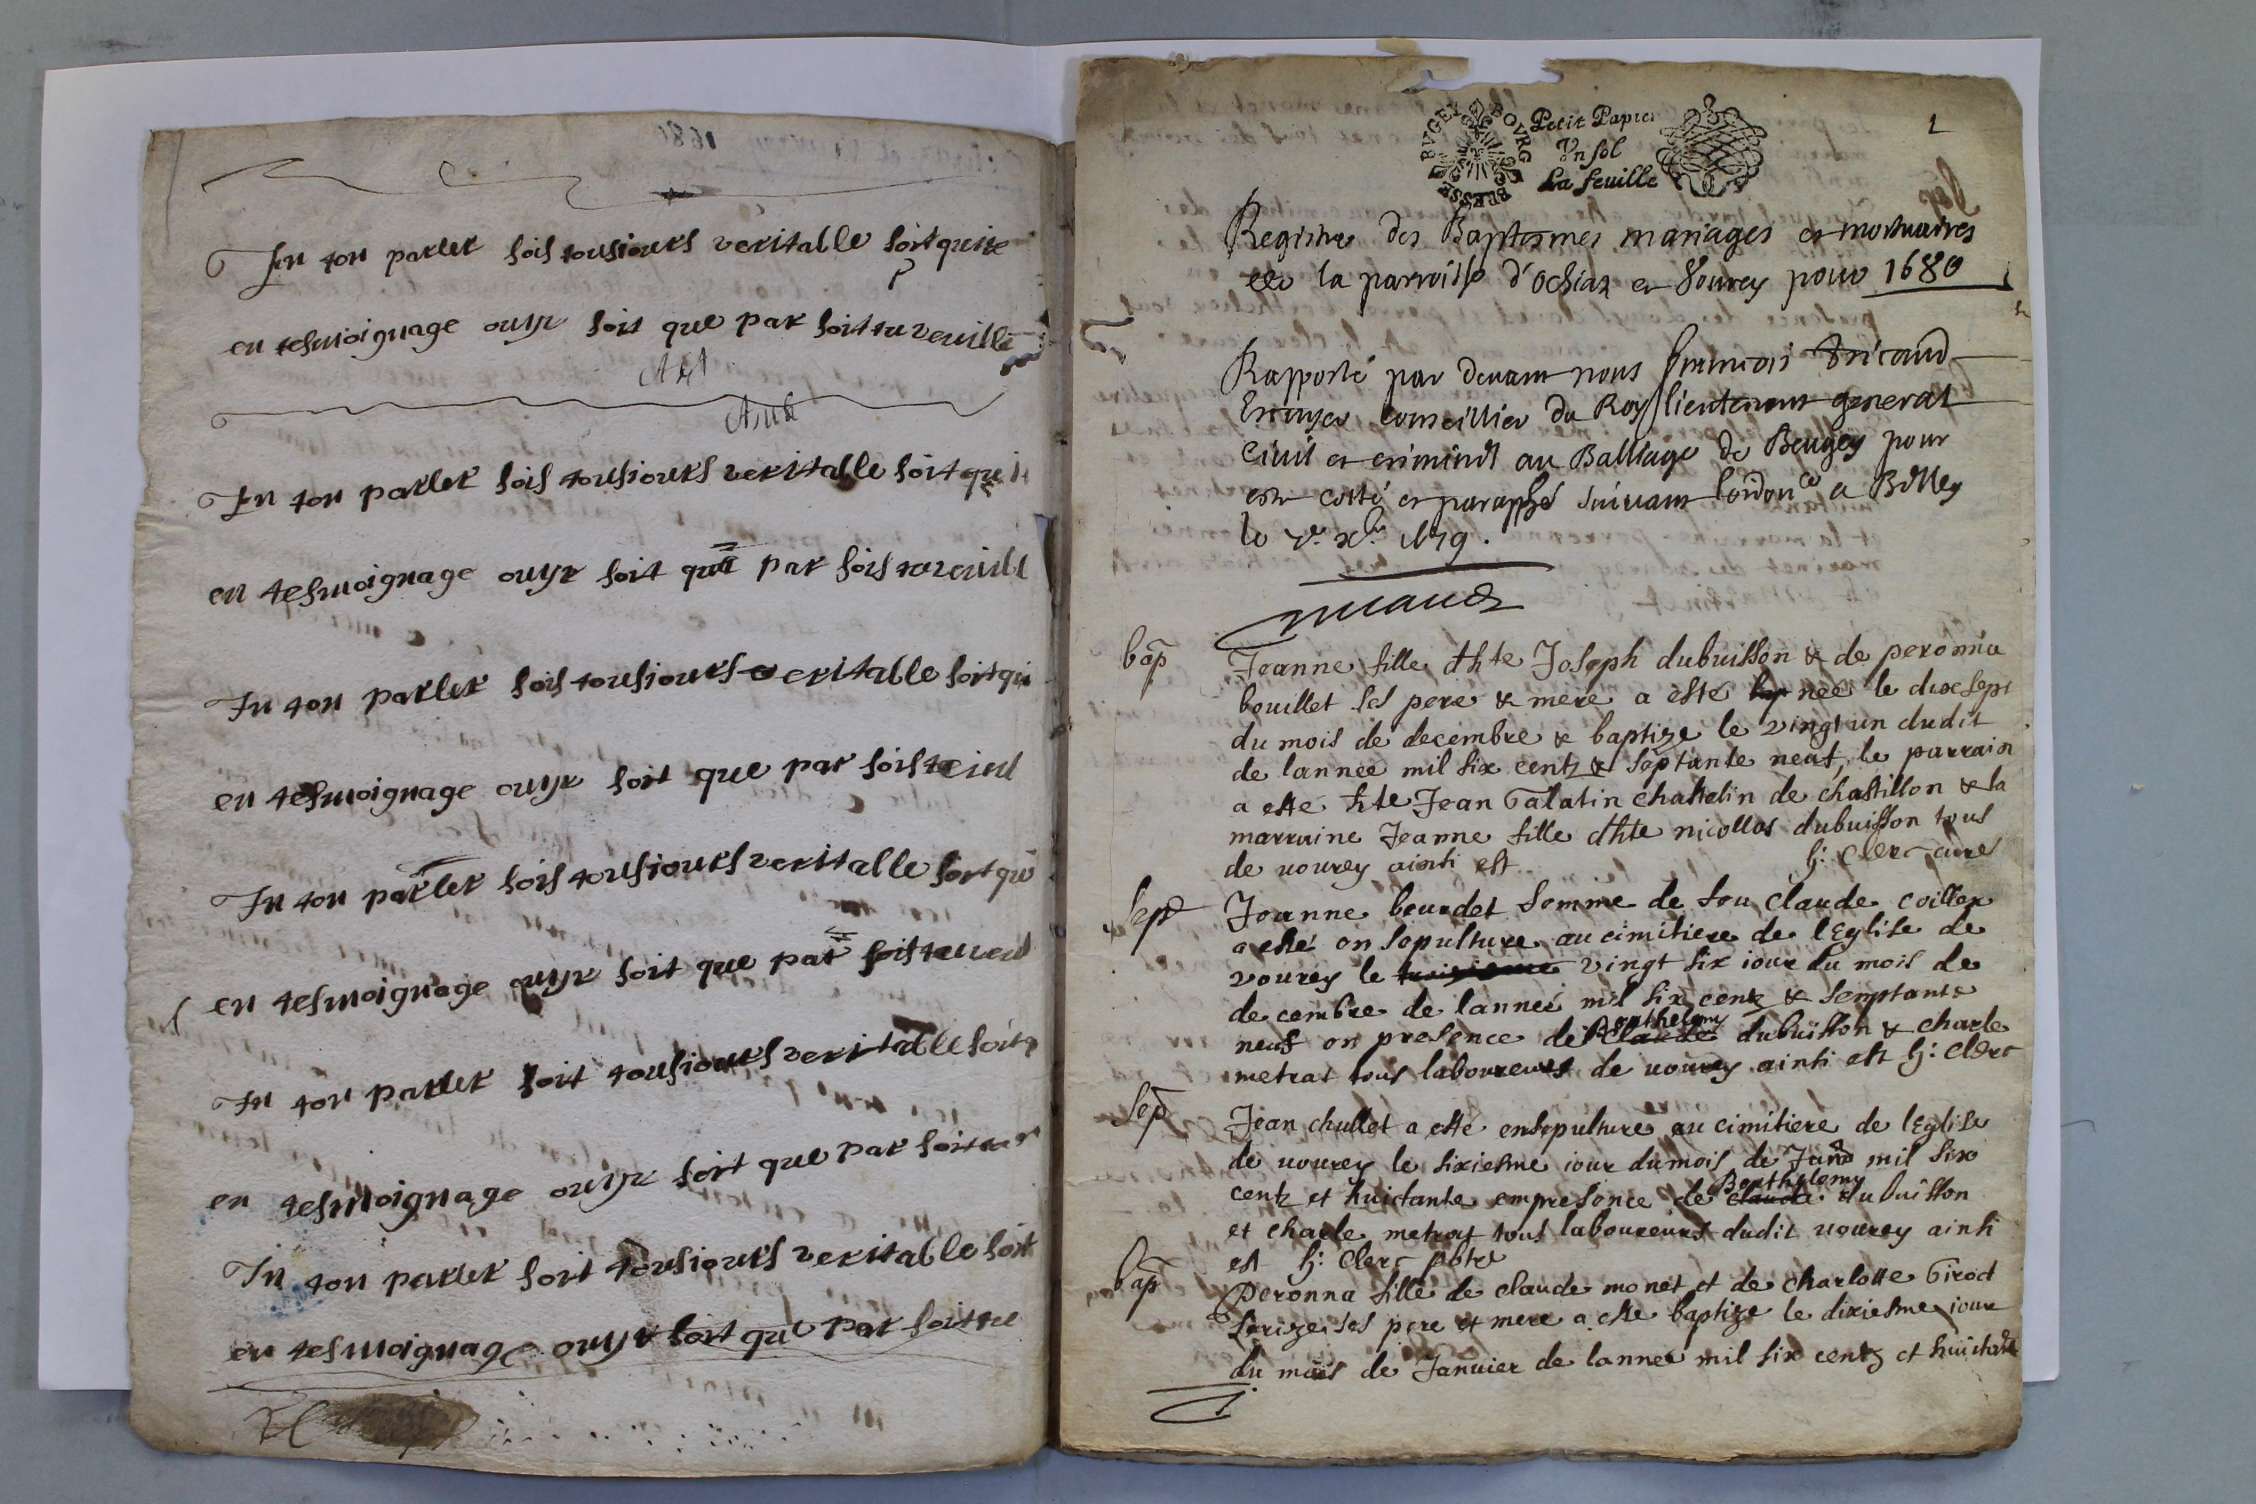 1680
En ton parler sois tousiours veritable soit qu'en
en tesmoignage ouyr soit que par soit tu veuille
En ton parler sois tousiours veritable soit qu
en tesmoignage ouyr soit que par sois tu
En ton parler sois tousiours veritable soit qu
en tesmoignage ouyr soit que par sois
En ton parler sois tousiours veritable soit qu
en tesmoignage ouyr soit que par sois tu
En ton parler soit tousiours veritable soit q
en tesmoignage ouyr soit que par soit tu
En ton parler soit tousiours veritable soit
en tesmoignage ouyr soit que par soit tu
1
BUGEY BOURG BRESSE
Petit Papier
Un sol
La feuille
Registre des Baptesmes mariages et mortuaires
de la parroisse d'Ochiaz et Vourey pour 1680
Rapporté par devant nous francois Tricaud
Escuyer conseillier du Roy lieutenant general
Civil et criminel au Balliage de Beugey pour
estre cotté et paraphé suivant l'ordon.ce a Belley
le
Tricaud
bap
Jeanne fille d'hte Joseph dubuisson & de peronne
bouillet ses pere & mere a esté nee le dixsept
du mois de decembre & baptize le vingt un dudit
de lannee mil six centz & septante neuf, le parrain
a esté hte Jean Galatin chastelin de chastillon & la
marraine Jeanne fille d'hte nicollas dubuisson tous
de vourey ainsi est
h: Clerc curé
sep
Jeanne bourdet femme de feu claude coillex
a esté en sepulture au cimitiere de l'Eglise de
vourey le troisieme vingt six iour du mois de
decembre de lannee mil six centz & semptante
neuf en presence de Claude Berthelemy dubuisson & charle
metrat tous laboureurs de vourey ainsi est h: Clerc
sep
Jean chullet a esté ensepulture au cimitiere de l'Eglise
de vourey le sixiesme iour du mois de Janv mil six
centz et huictante empresence de claude Berthelemy dubuisson
et charle metrat tous laboureurs dudit vourey ainsi
est h: Clerc pbtre
bap
peronna fille de claude monet et de charlotte Girod
ses pere et mere a esté baptize le dixiesme iour
du mois de Januier de lannee mil six centz et huictante